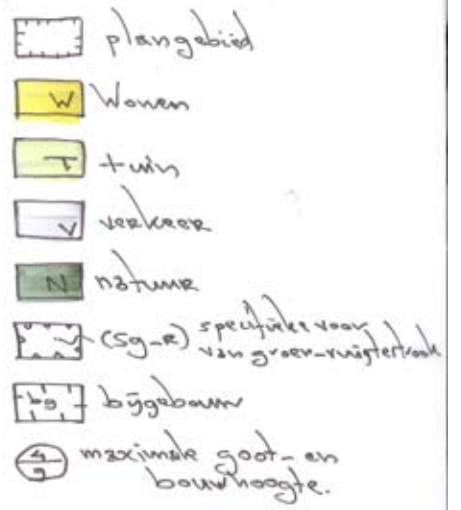 plangebied
W Wonen
T tuin
V verkeer
N natuur
(sg-r) specifieke voor
van groen-ruigtestrook
bg bijgebouw
4
9 maximale goot- en
bouwhoogte.